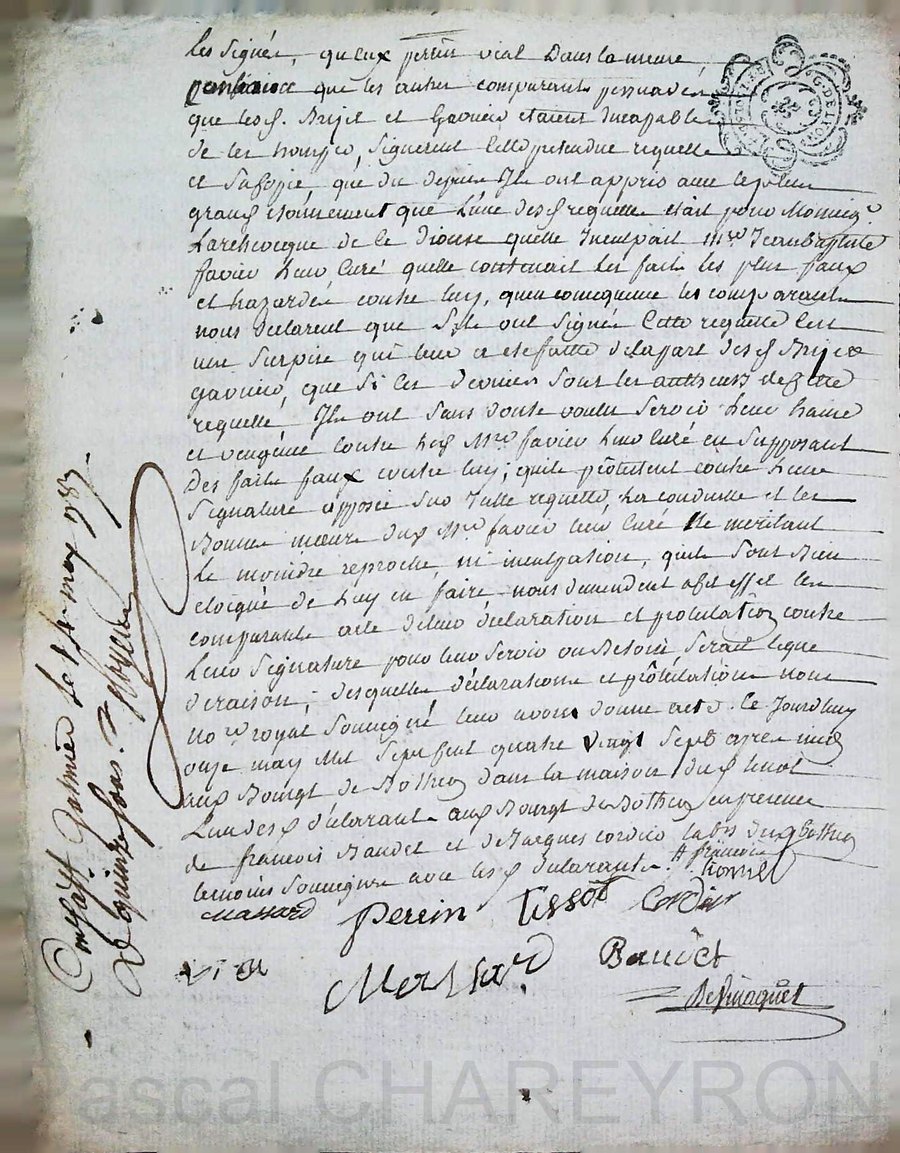 les signés, qu'eux perrin vial Dans la meme
confiance que les autres comparants persuadés
que lesd. Brijet et Gavinio etaient Incapable
de les tromper, signerent Cette pretendue requette
et Sa copie, que du depuis Ils ont appris avec le plus
grand etonnement que L'une desd requette etait pour Monseigr.
Larchevecque de ce diocese quelle Inculpait mre Jean Baptiste
favier Leur Curé quelle contenait des faits les plus faux
et hazardés contre luy, qu'en consequence les comparants
nous declarent que S'ils ont Signé Cette requette C'est
une surprise qui leur a eté faitte de la part desd Brijet &
que Si Ces derniers Sont les autheurs de Cette
requette Ils ont Sans doute voulu Servir Leur haine
et vengence contre Led Mre favier Leur Curé en Supposant
Des faits faux contre luy; quils protestent contre Leur
Signature apposée Sur Telle requette, La conduitte et les
Bonne mœurs dud Mre favier leur Curé Ne meritant
Le moindre reproche ni inculpation, quils Sont Bien
eloigné de Luy en faire, nous demendent a cet effet les
comparants acte de leur declaration et protestation contre
Leur Signature pour leur Servir ou Besoin Serait Ce que
de raison; desquelles declarations et protestations nous
nore royal Soussigné leur avons donné acte. Ce Jourdhuy
onze may Mil Sept Cent quatre vingt Sept apres midy
aud Bourgt de Bothéon dans la maison dud tissot
L'un desd declarants aud Bourgt de Bothéon en presence
de francois Baudet et de Jacques Cordier dud Bothéon
temoins Soussignés avec les d declarants. francois
Massard Perrin Tissot Cordier
vial Mersard Baudet
Delmaquet
Con. a St Galmier Le 14 may 1787
Reçu quinze sous.
G. DE LYON
Pascal CHAREYRON